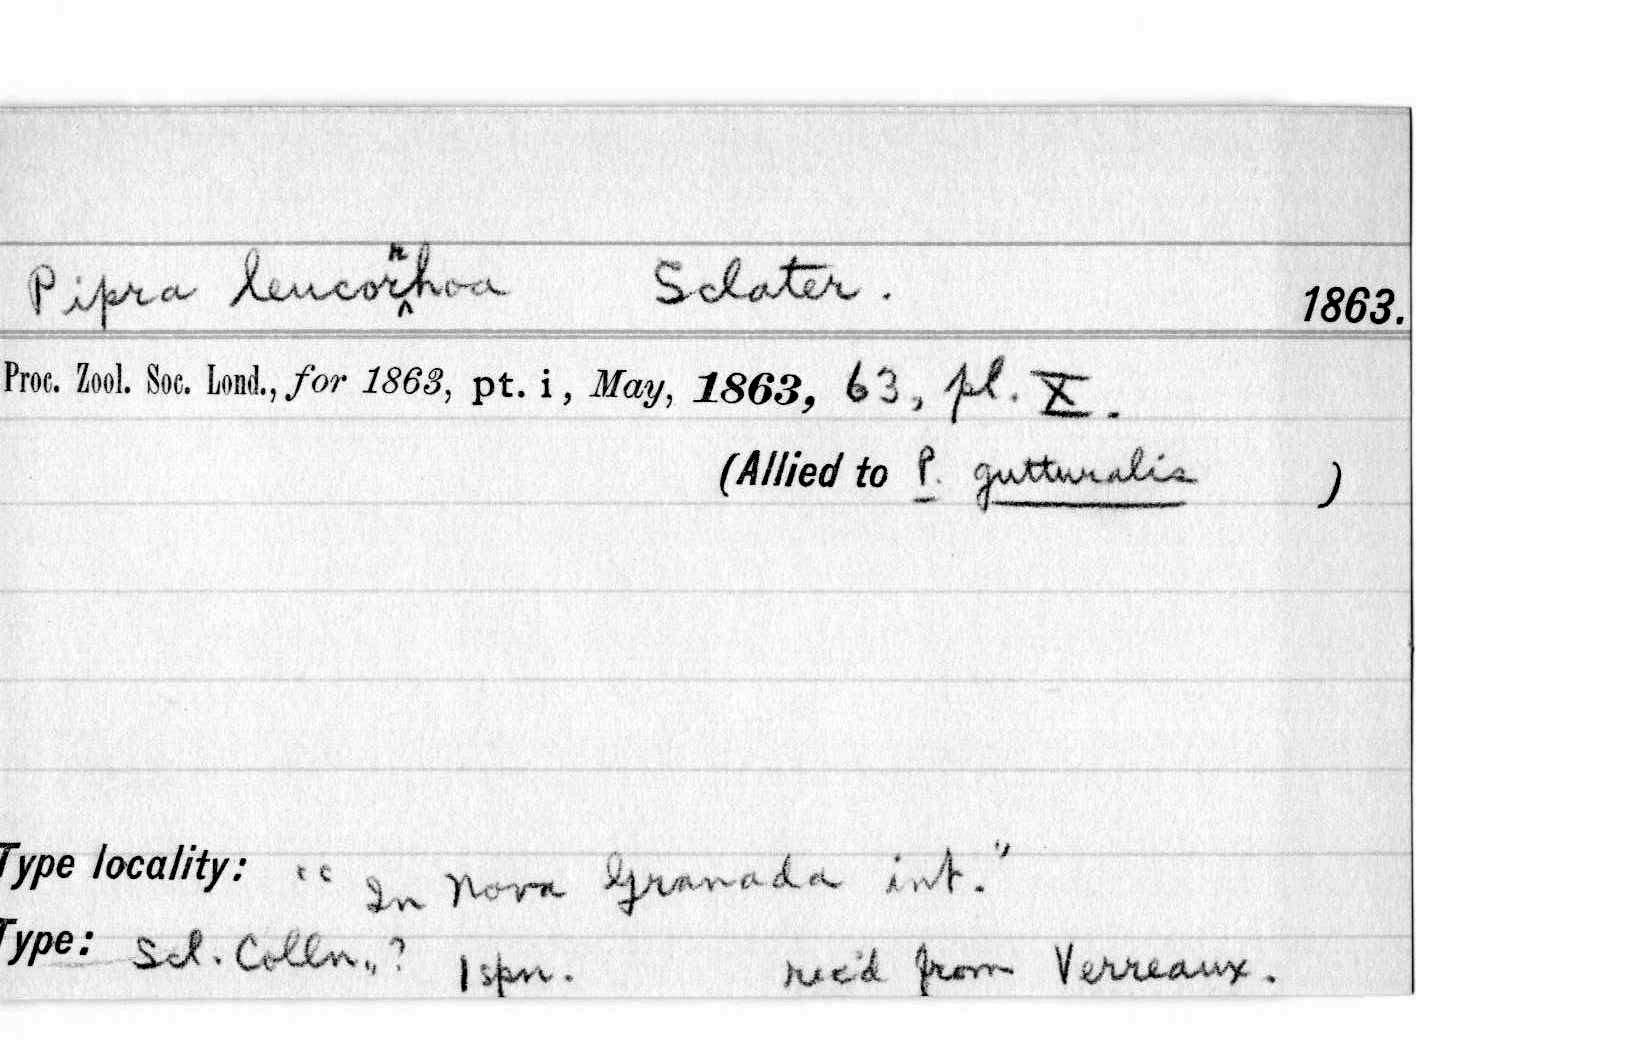 Pipra leucorrhoa Sclater. 1863.
Proc. Zool. Soc. Lond., for 1863, pt. i, May, 1863, 63, pl. X.
(Allied to P. gutturalis )
Type locality: "In Nova Granada int."
Type: Scl. Colln., ? 1 spn. rec'd from Verreaux.